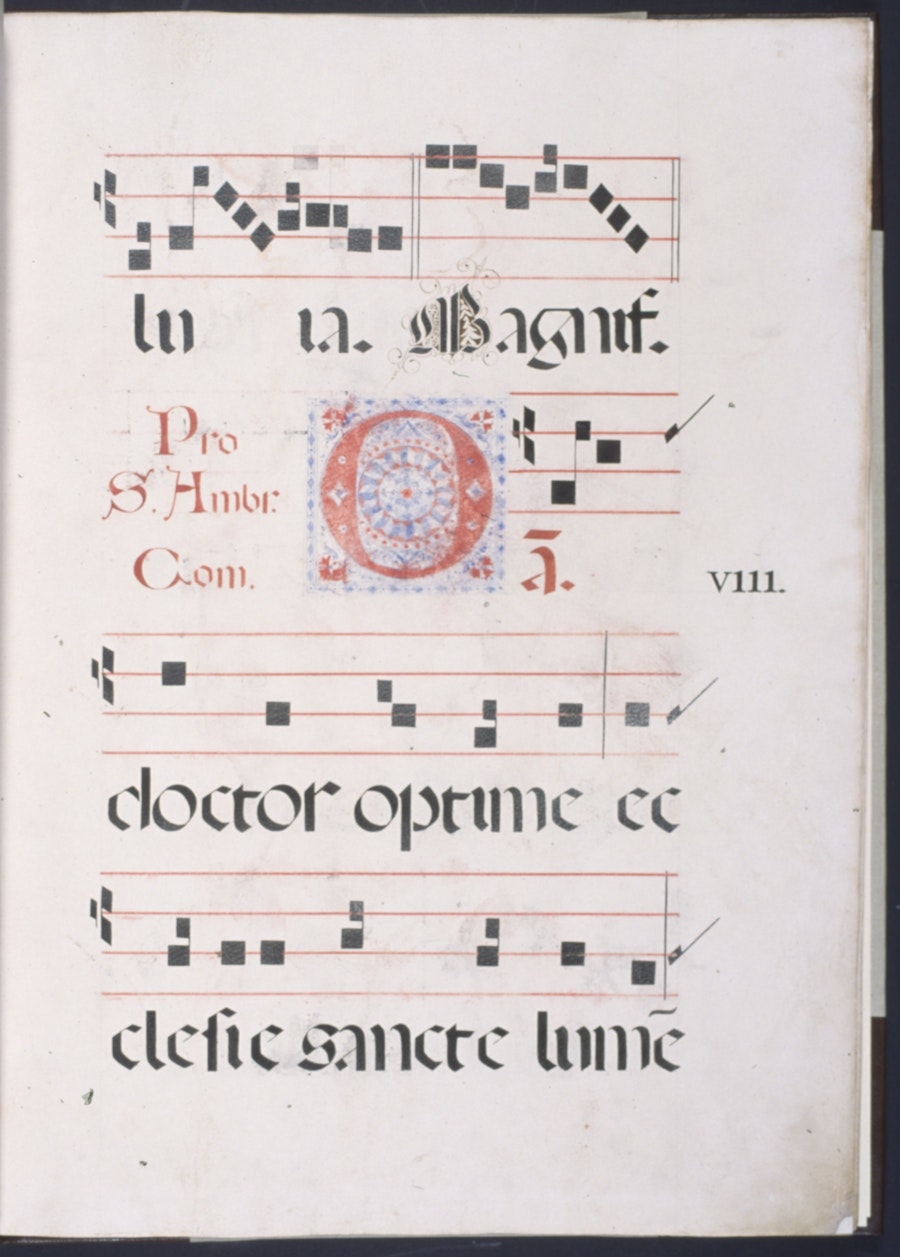 lu ia. Magnif.
Pro
S. Ambr.
Com.
O ā. VIII.
doctor optime ec
clesie sancte lumē